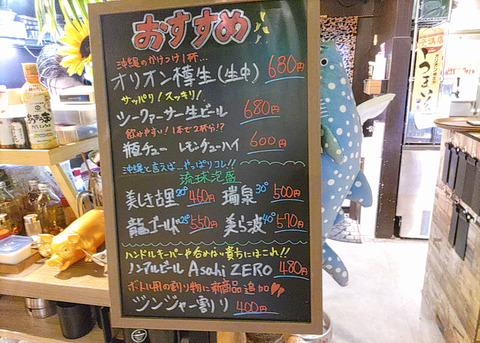 おすすめ
沖縄のかけつけ1杯…
オリオン樽生(生中) 680円
サッパリ!スッキリ!
シークァーサー生ビール 680円
飲みやすい!1本で2杯分!?
瓶チュー レモンチューハイ 600円
沖縄と言えば…やっぱりコレ!!
琉球泡盛
美しき古里20° 460円 瑞泉30° 500円
龍ゴールド25° 550円 美ら波40° 570円
ハンドルキーパーや呑めない貴方にはこれ!!
ノンアルビール Asahi ZERO 480円
ボトル用の割り物に新商品追加
ジンジャー割り 400円